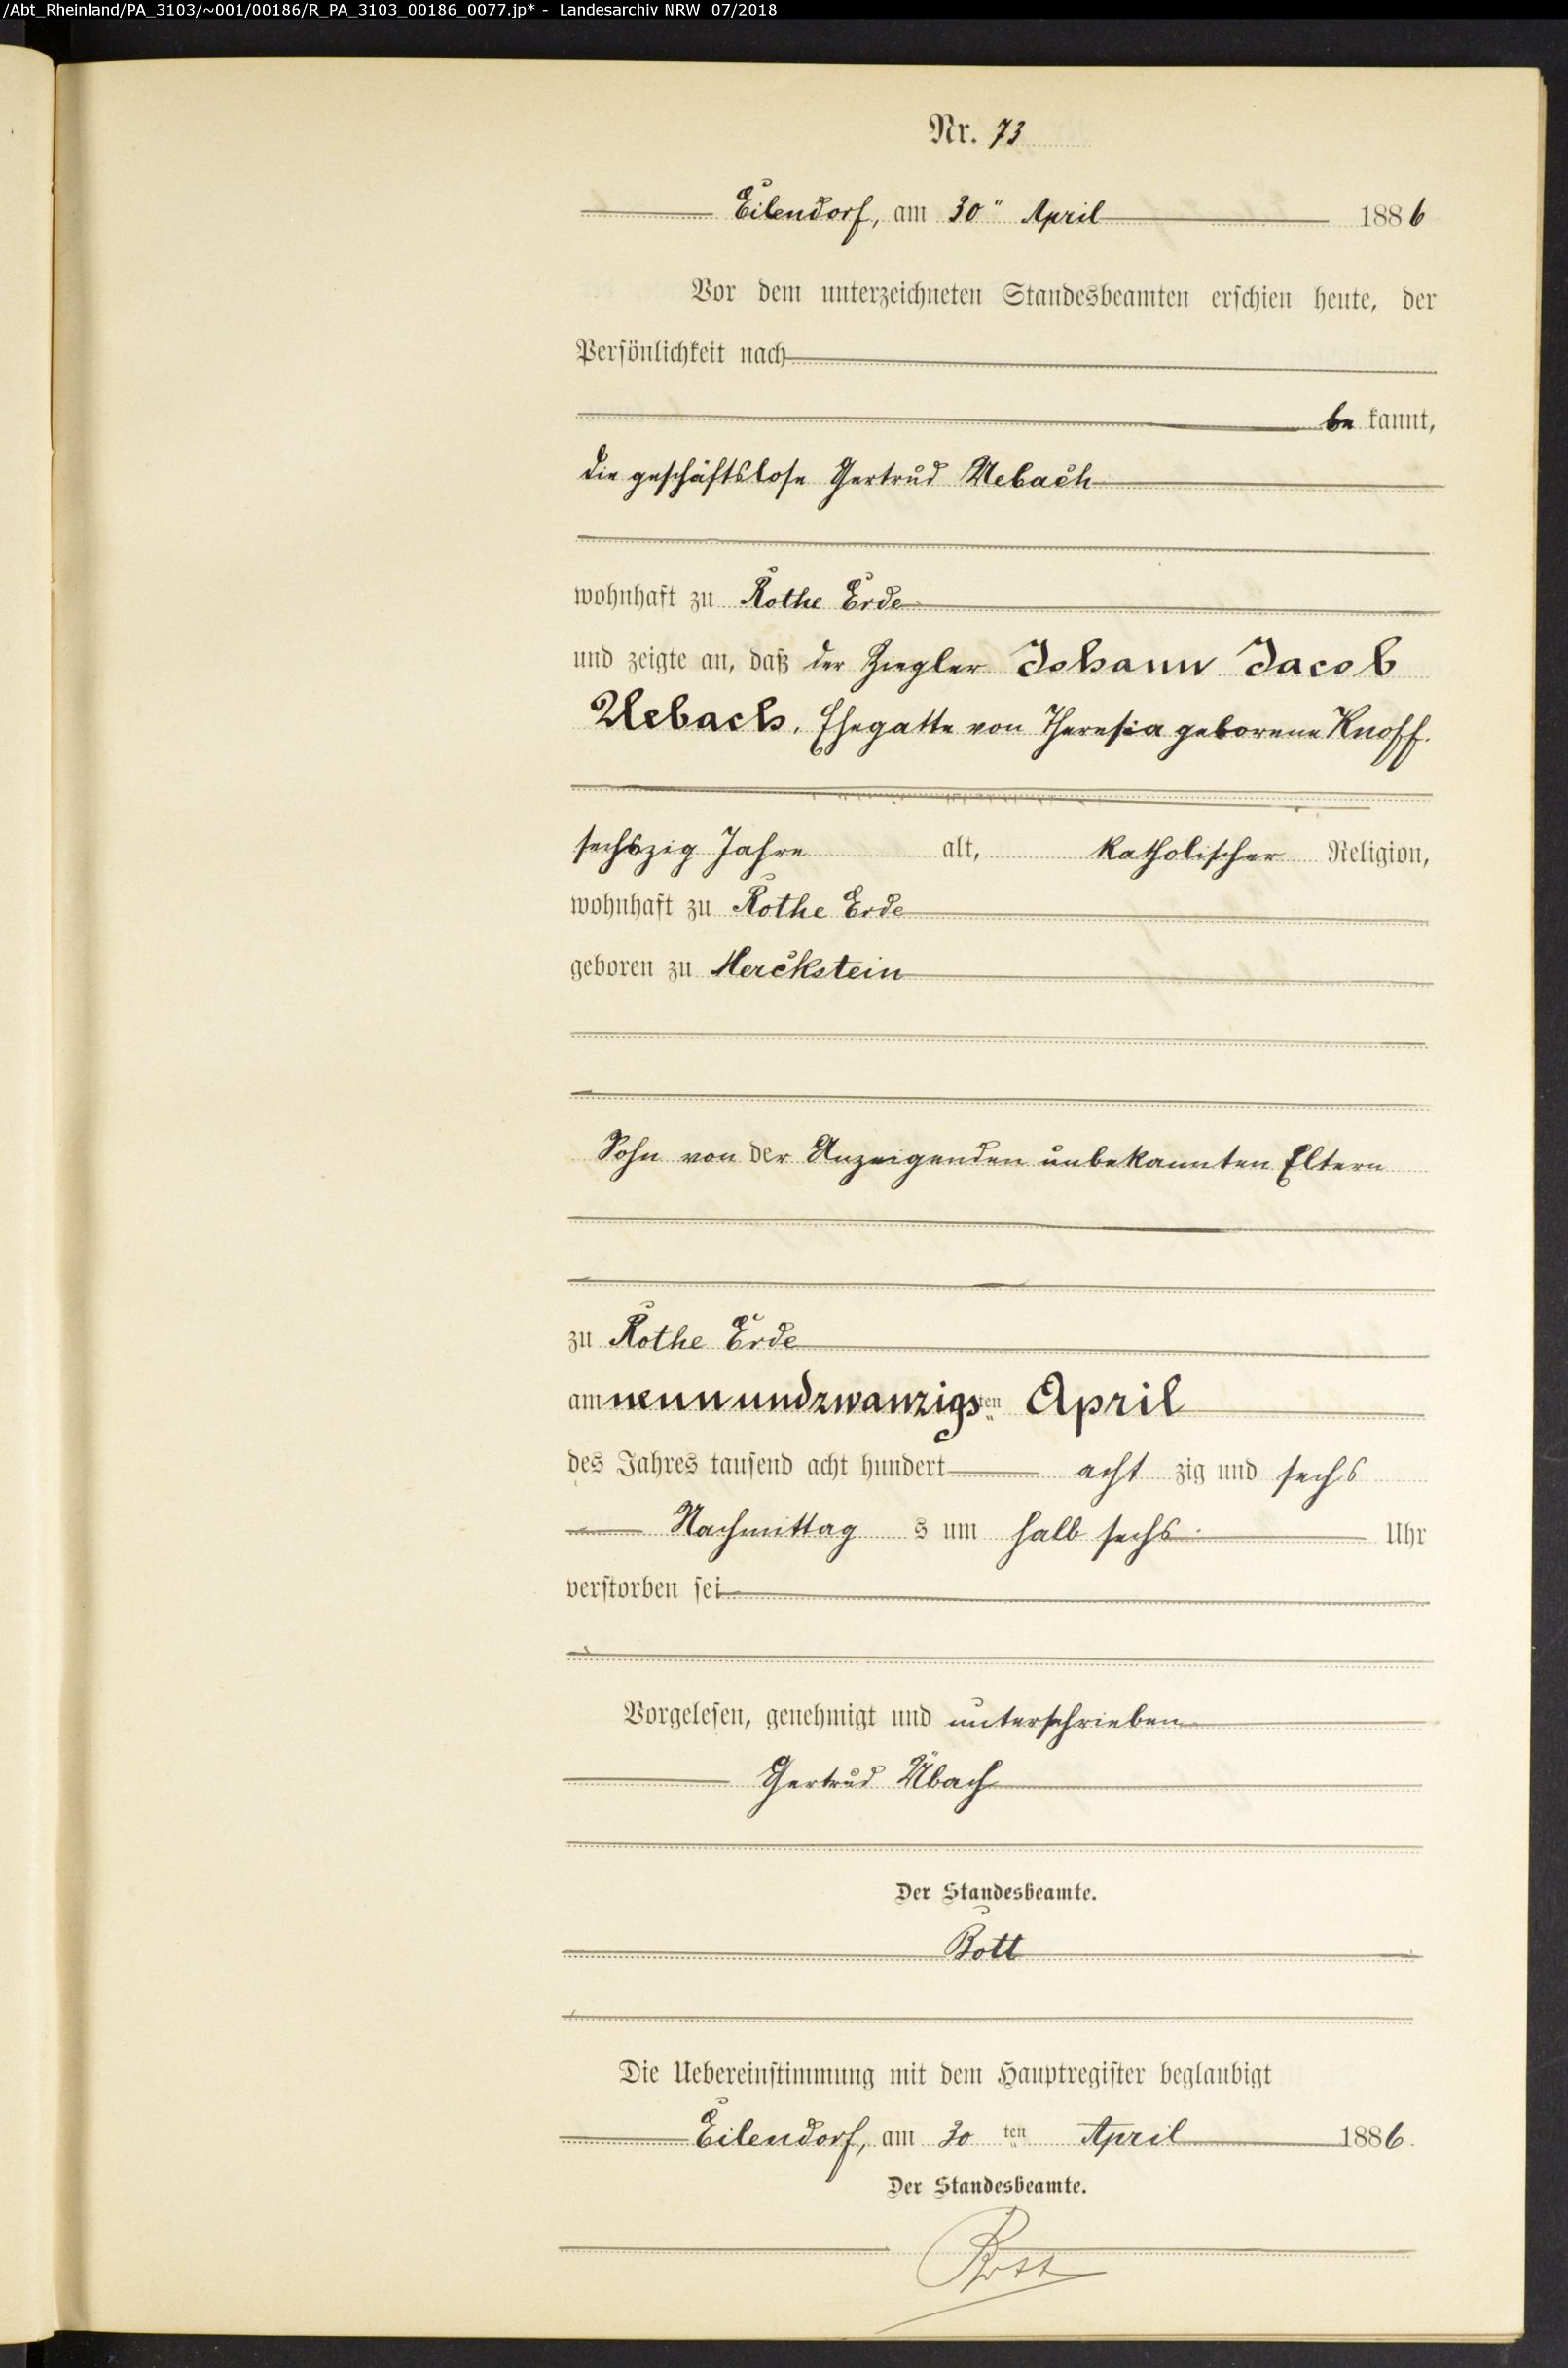 /Abt_Rheinland/PA_3103/~001/00186/R_PA_3103_00186_0077.jp* - Landesarchiv NRW 07/2018
Nr. 73
Eilendorf, am 30" April 1886
Vor dem unterzeichneten Standesbeamten erschien heute, der
Persönlichkeit nach
be kannt,
die geschäftslose Gertrud Uebach
wohnhaft zu Rothe Erde
und zeigte an, daß der Ziegler Johann Jacob
Uebach, Ehegatte von Theresia geborene Knoff.
sechszig Jahre alt, katholischer Religion,
wohnhaft zu Rothe Erde
geboren zu Merckstein
Sohn von der Anzeigenden unbekannten Eltern
zu Rothe Erde
am neunundzwanzigsten April
des Jahres tausend acht hundert acht zig und sechs
Nachmittag s um halb sechs Uhr
verstorben sei
Vorgelesen, genehmigt und unterschrieben
Gertrud Übach
Der Standesbeamte.
Bott
Die Uebereinstimmung mit dem Hauptregister beglaubigt
Eilendorf, am 30 ten April 1886.
Der Standesbeamte.
Bott